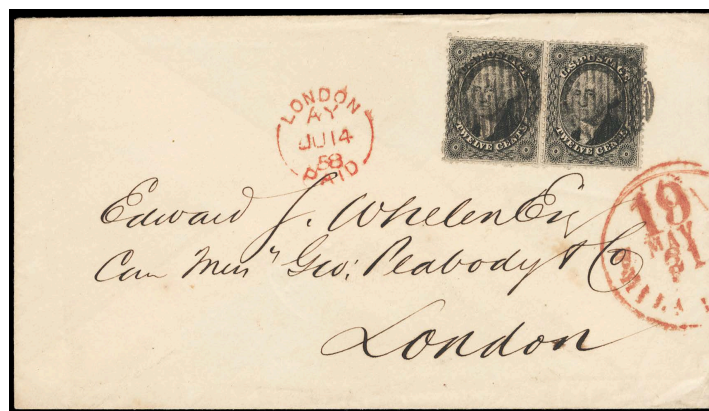 U.S. POSTAGE
TWELVE CENTS
U.S. POSTAGE
TWELVE CENTS
LONDON
AY
JU 14
58
PAID
19
MAY
PHILA
Edward J. Whelen Esq
Care Messrs Geo; Peabody & Co
London